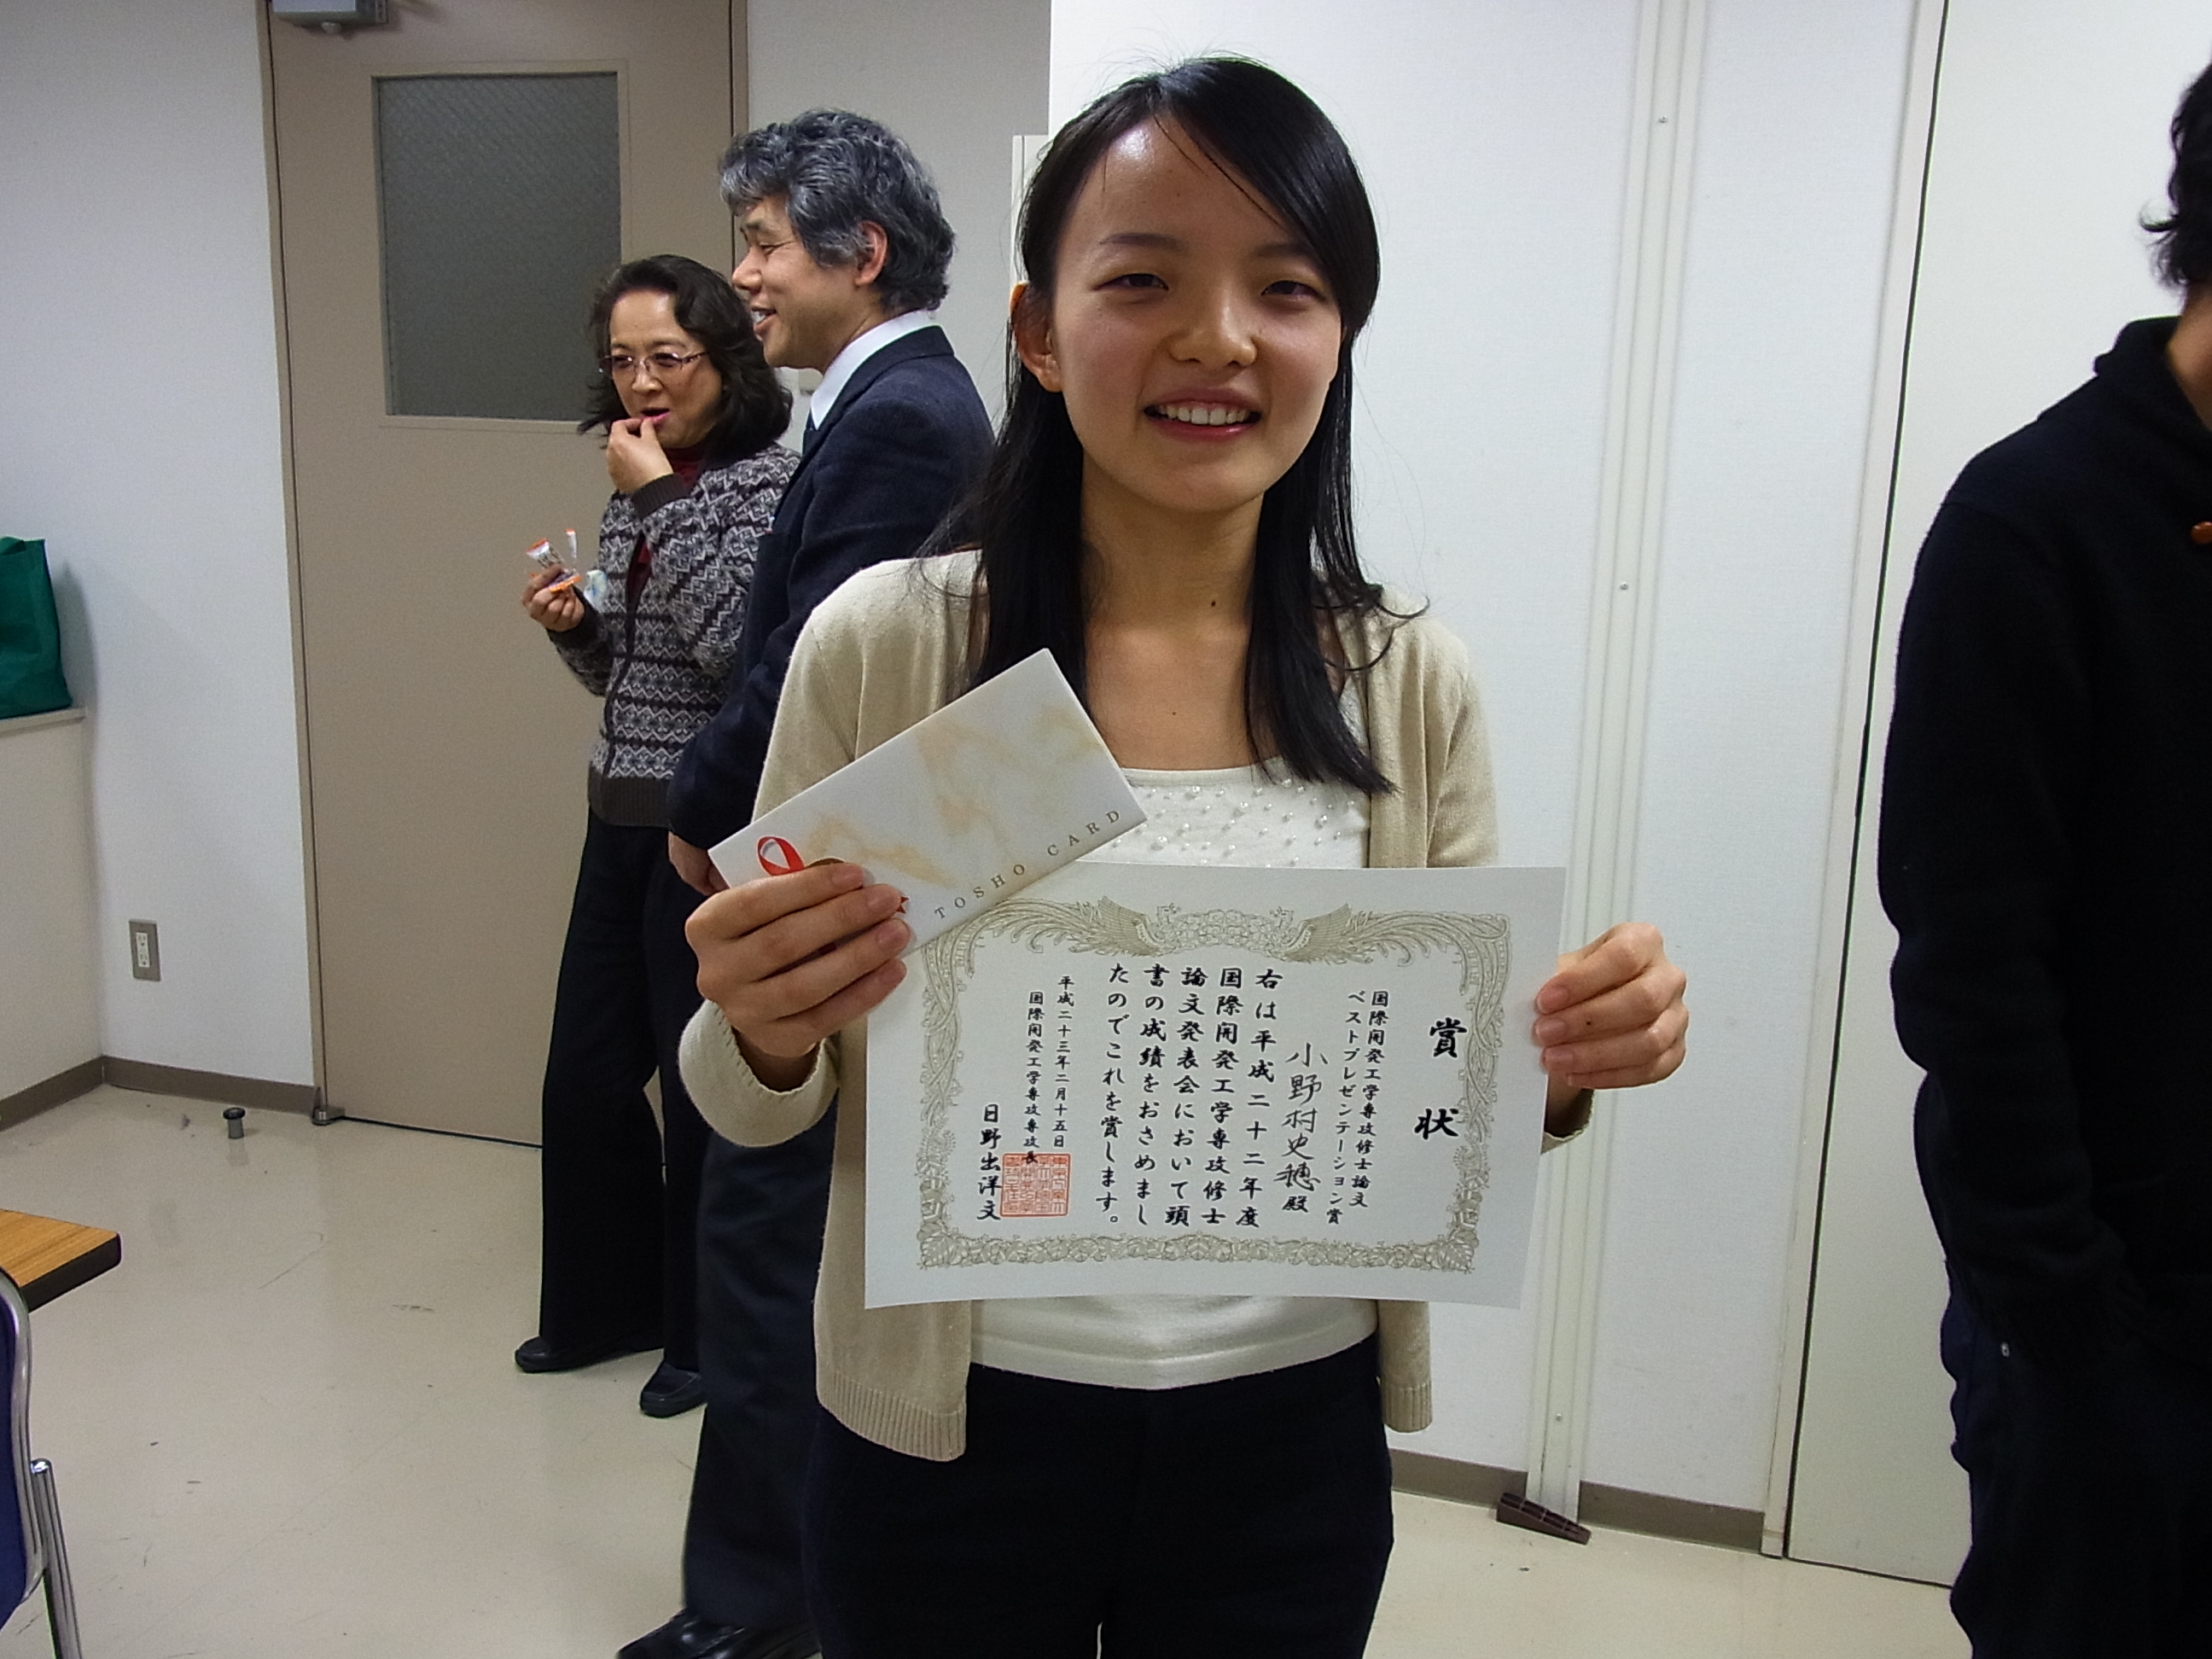 TOSHO CARD
賞状
国際開発工学専攻修士論文
ベストプレゼンテーション賞
小野村史穂殿
右は平成二十二年度
国際開発工学専攻修士
論文発表会において頭
書の成績をおさめまし
たのでこれを賞します。
平成二十三年二月十五日
国際開発工学専攻専攻長
日野出洋文